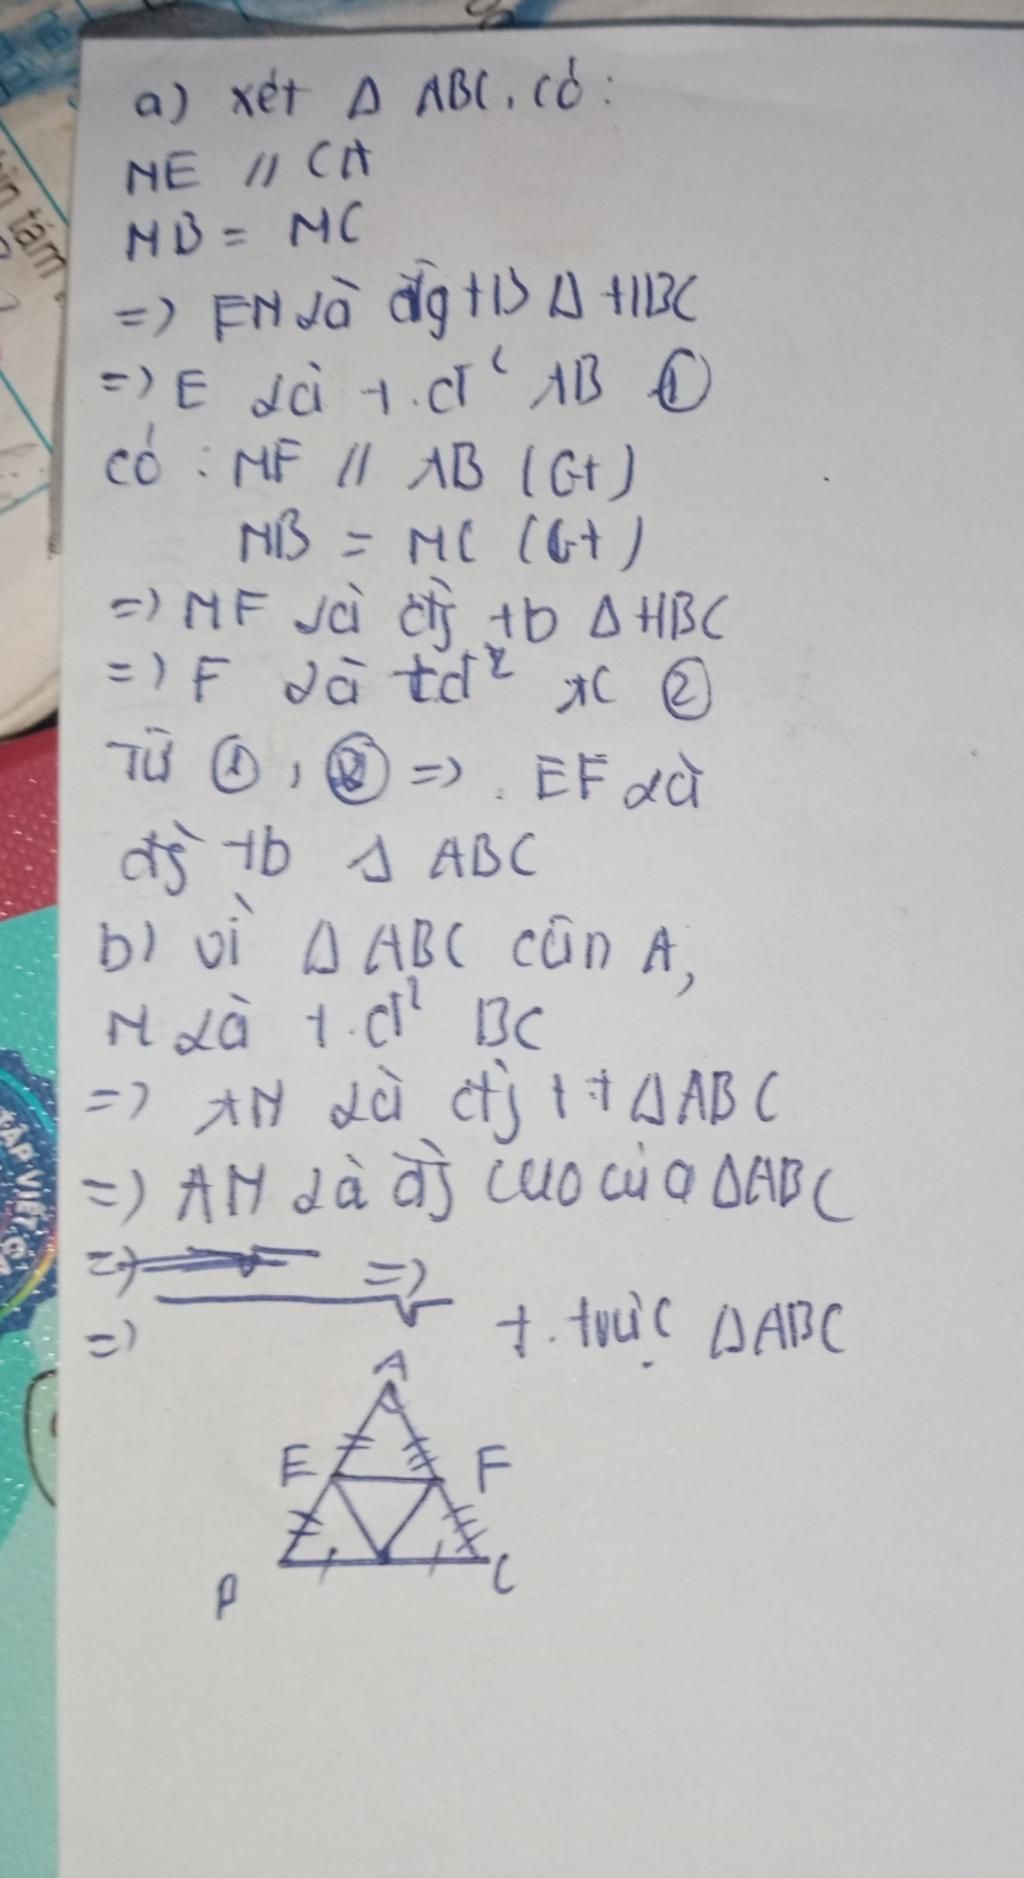 a) xét Δ ABC, có:
ME // CA
MB = MC
=> EM là đg tb Δ ABC
=> E là t.đ² AB ①
có : MF // AB (Gt)
MB = MC (Gt)
=> MF là đg tb Δ ABC
=> F là tđ² AC ②
Từ ①, ② => . EF là
đg tb Δ ABC
b) vì Δ ABC cân A,
M là t.đ² BC
=> AM là đg tt Δ ABC
=> AM là đg cao của Δ ABC
=> =>
=> t. trực Δ ABC
A
E F
B C
tám
TẬP VIẾT C